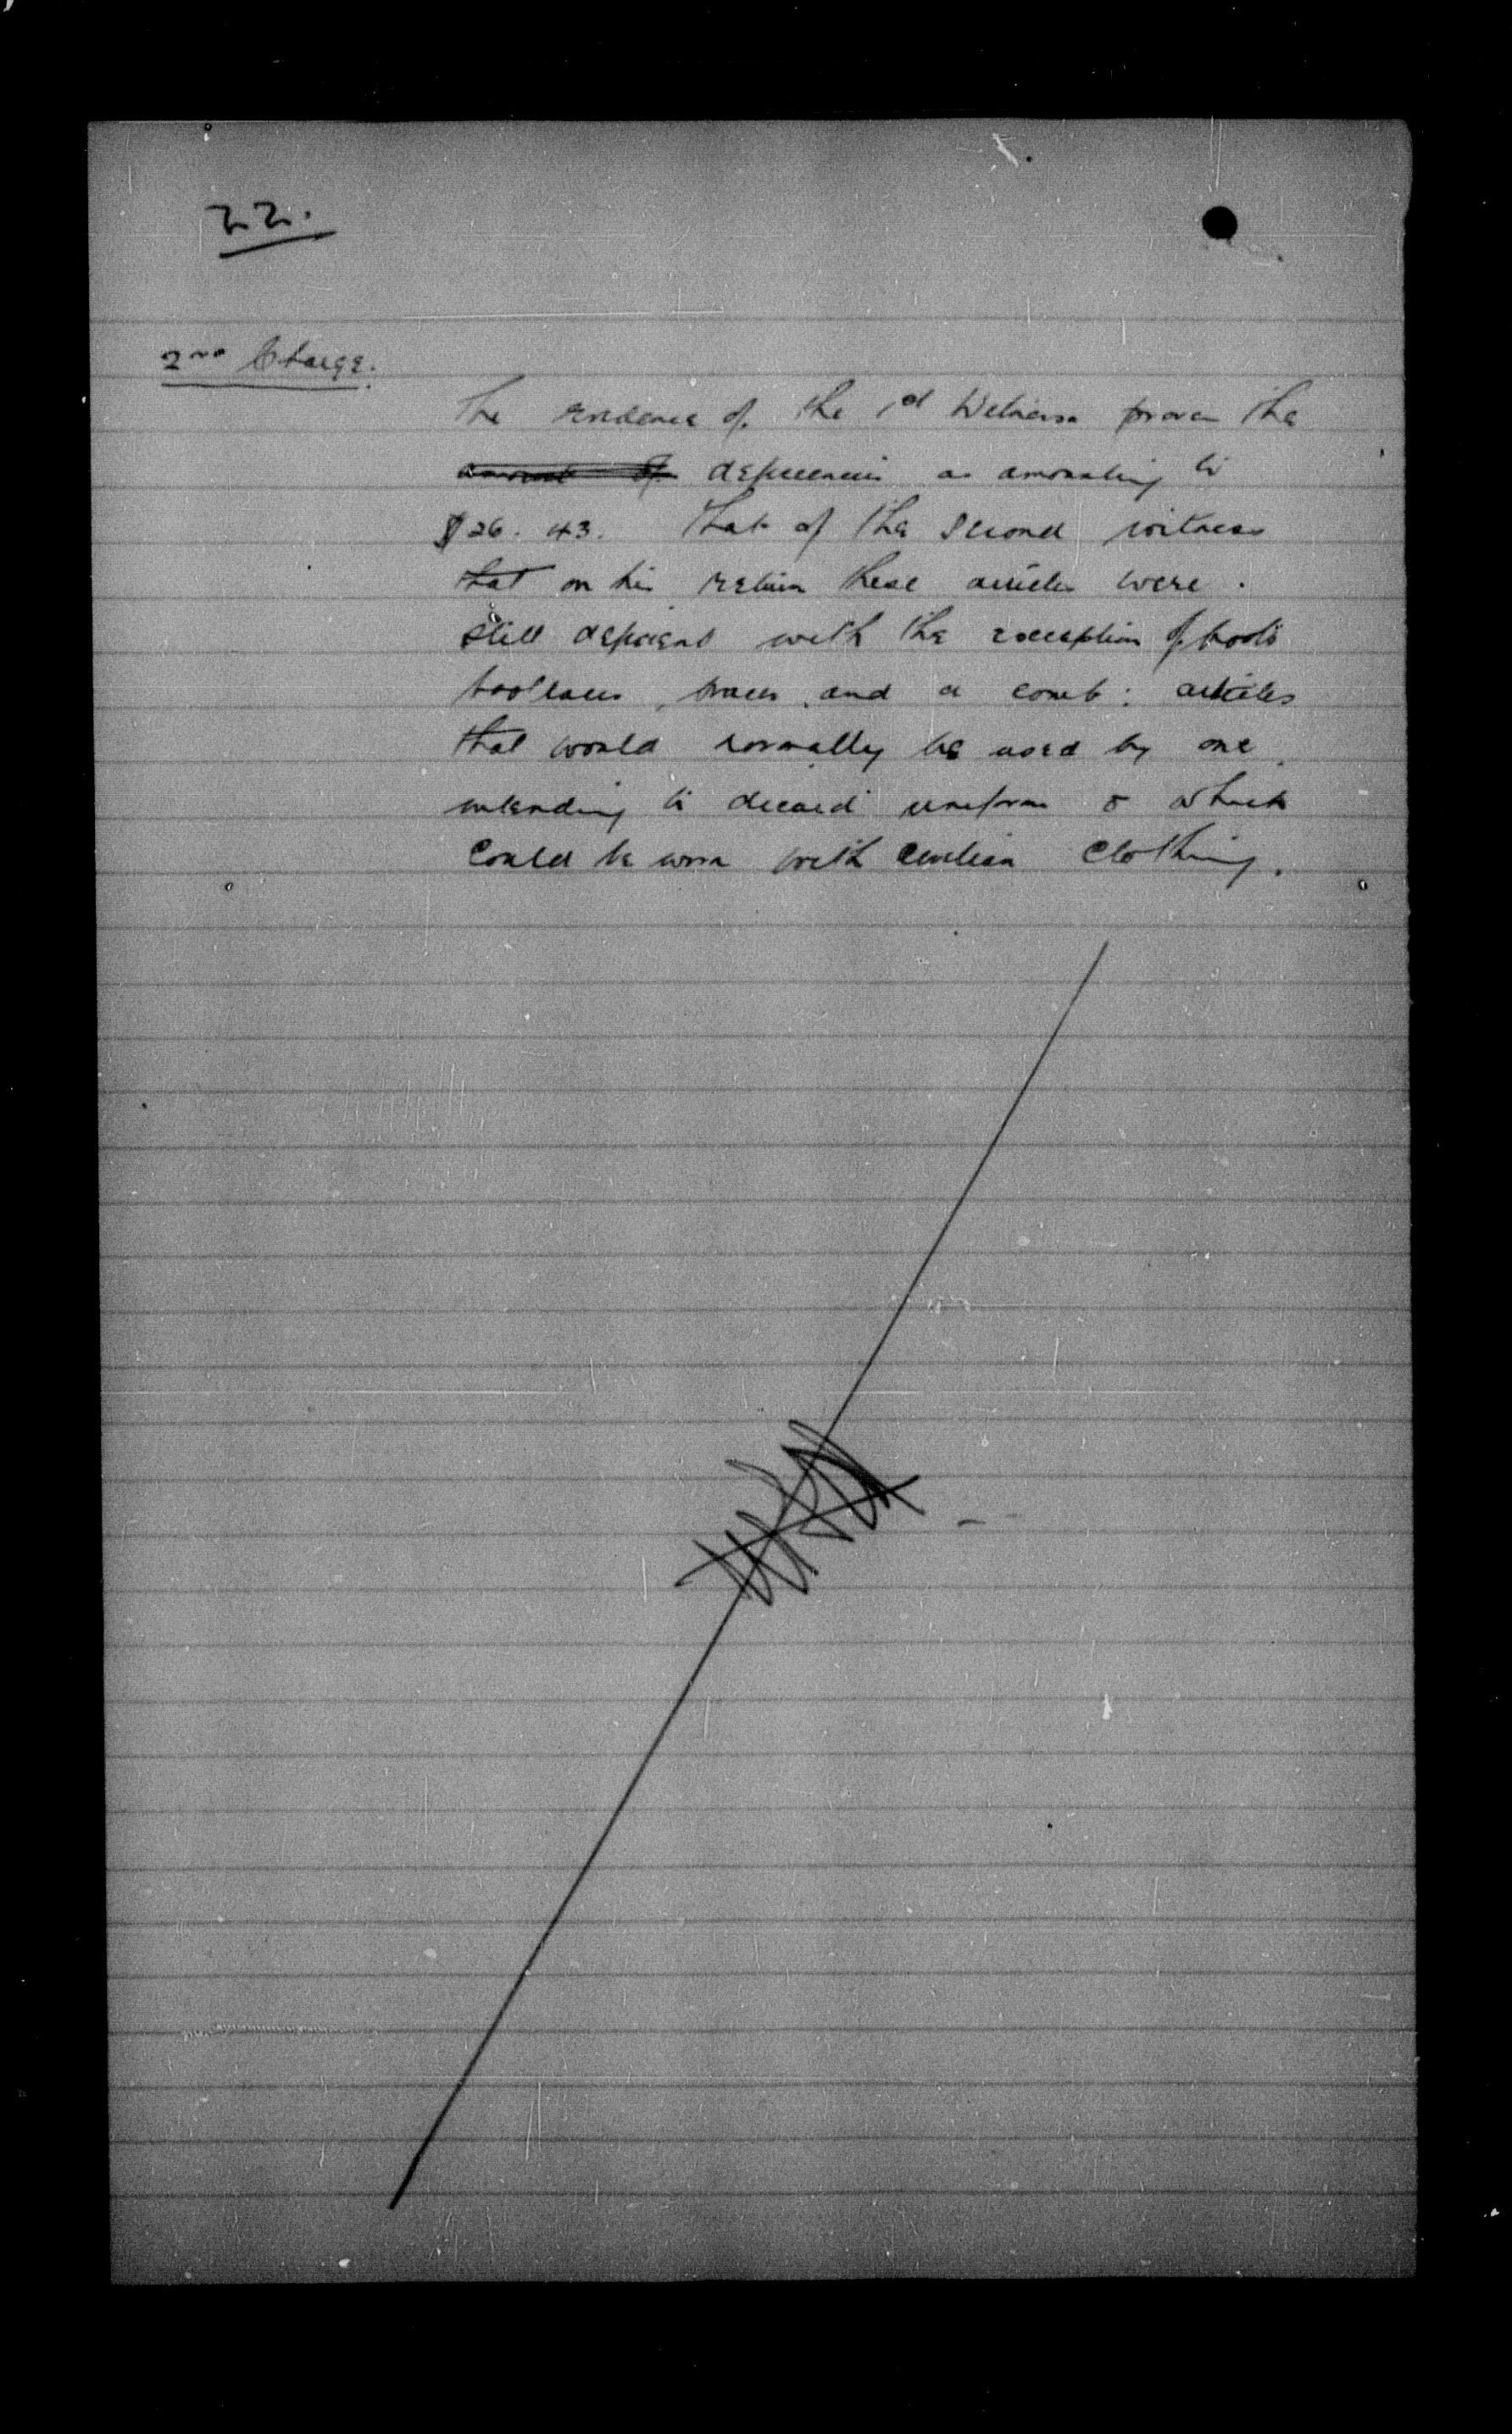 22.
2nd Charge.
The evidence of the 1st Witness proves the
amount of deficiencies as amounting to
$26.43. That of the Second witness
that on his return these articles were
still deficient with the exception of boots
bootlaces, braces, and a comb: articles
that would normally be used by one
intending to discard uniform & which
could be worn with civilian clothing.